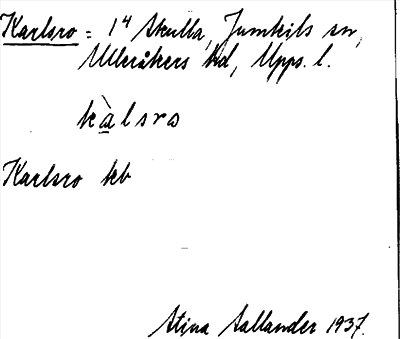 Karlsro = 1⁴ Skulla, Jumkils sn,
Ulleråkers hd, Upps. l.
kàlsro
Karlsro kb
Stina Sallander 1937.